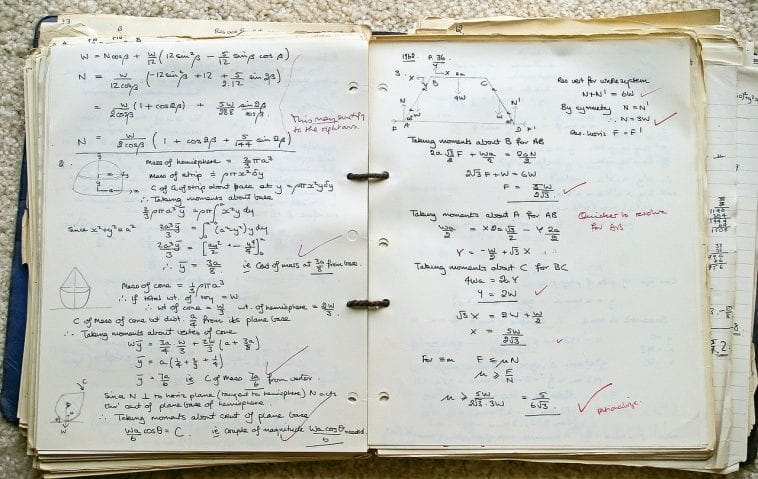 W = N cos β + W/12 (12 sin²β − 5/12 sin β cos β)
N = W/12cosβ (−12 sin²β + 12 + 5/2.12 sin 2β)
= W/2cosβ (1 + cos 2β) + 5W/288 sin 2β/cosβ
This may simplify
to the right ans.
N = W/2cosβ (1 + cos 2β + 5/144 sin 2β)
2.
Mass of hemisphere = 2/3 ρπa³
Mass of strip = ρπx²δy
C of G of strip about base at y = ρπx²yδy
∴ Taking moments about base
2/3 ρπa³ȳ = ρπ∫x²y dy
since x²+y² = a²
2a³ȳ/3 = ∫(a²−y²)y dy
2a³ȳ/3 = [a²y²/2 − y⁴/4]
∴ ȳ = 3a/8 ie Cent of mass at 3a/8 from base.
Mass of cone = 1/3 ρπa³
∴ if total wt. of toy = W
∴ wt of cone = W/3 wt. of hemisphere = 2W/3
C of Mass of cone wt dist. a/4 from its plane base
∴ Taking moments about vertex of cone
Wȳ = 3a/4 W/3 + 2W/3 (a + 3a/8)
ȳ = a(1/4 + 2/3 + 1/4)
ȳ = 7a/6 ie C of Mass 7a/6 from vertex
Since N ⊥ to horiz plane (tangent to hemisphere) N acts
thru' cent of plane base of hemisphere
∴ Taking moments about cent of plane base
Wa/6 cosθ = C. ie couple of magnitude Wa cosθ/6 needed.
1968 P. 36
3.
Res vert for whole system
N + N' = 6W
By symmetry N = N'
∴ N = 3W
Res. horiz F = F'
Taking moments about B for AB
2a √3/2 F + Wa/2 = 2aN/2
2√3 F + W = 6W
F = 5W/2√3
Taking moments about A for AB
Quicker to resolve
for AB
Wa/2 = X 2a√3/2 − Y 2a/2
Y = −W/2 + √3 X
Taking moments about C for BC
4Wa = 2aY
Y = 2W
√3 X = 2W + W/2
X = 5W/2√3
For ≡m F ≤ μN
μ ≥ F/N
μ ≥ 5W/2√3.3W = 5/6√3